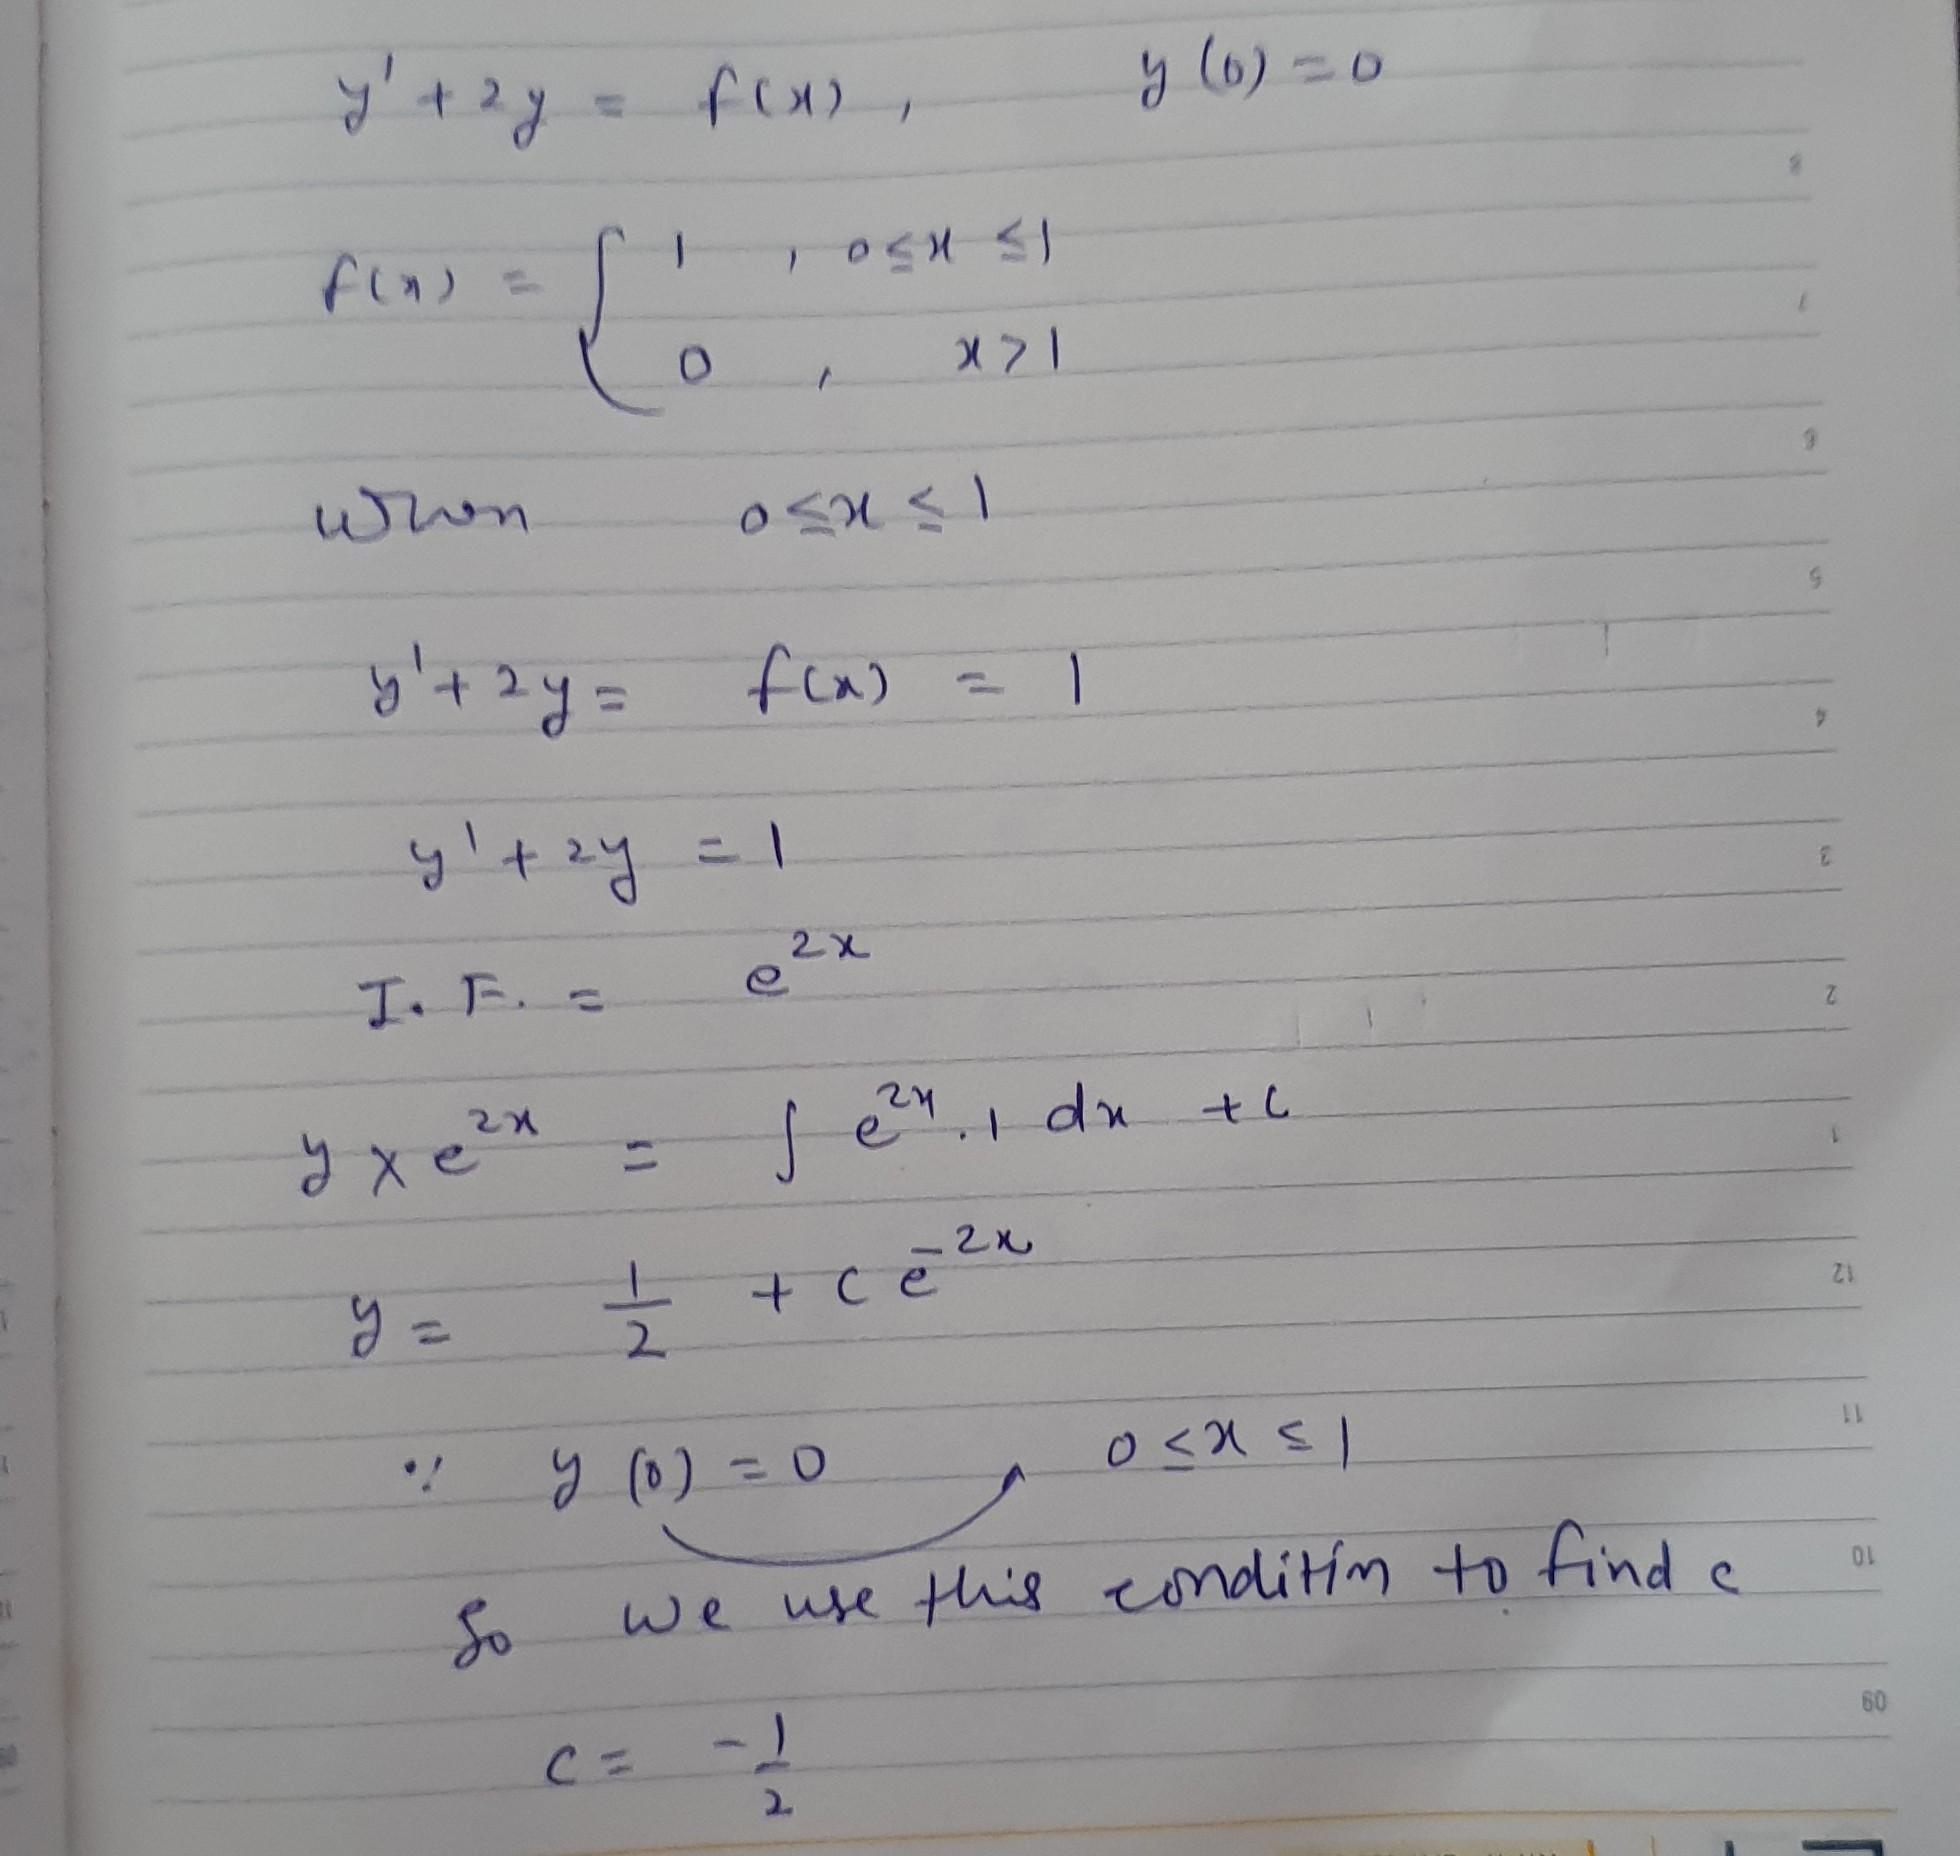 y' + 2y = f(x), y(0) = 0
f(x) = { 1 , 0 ≤ x ≤ 1
0 , x > 1
When 0 ≤ x ≤ 1
y' + 2y = f(x) = 1
y' + 2y = 1
I. F. = e^{2x}
y × e^{2x} = ∫ e^{2x} . 1 dx + c
y = 1/2 + c e^{-2x}
∵ y(0) = 0 0 ≤ x ≤ 1
So we use this condition to find c
c = -1/2
8
7
6
5
4
3
2
1
12
11
10
09